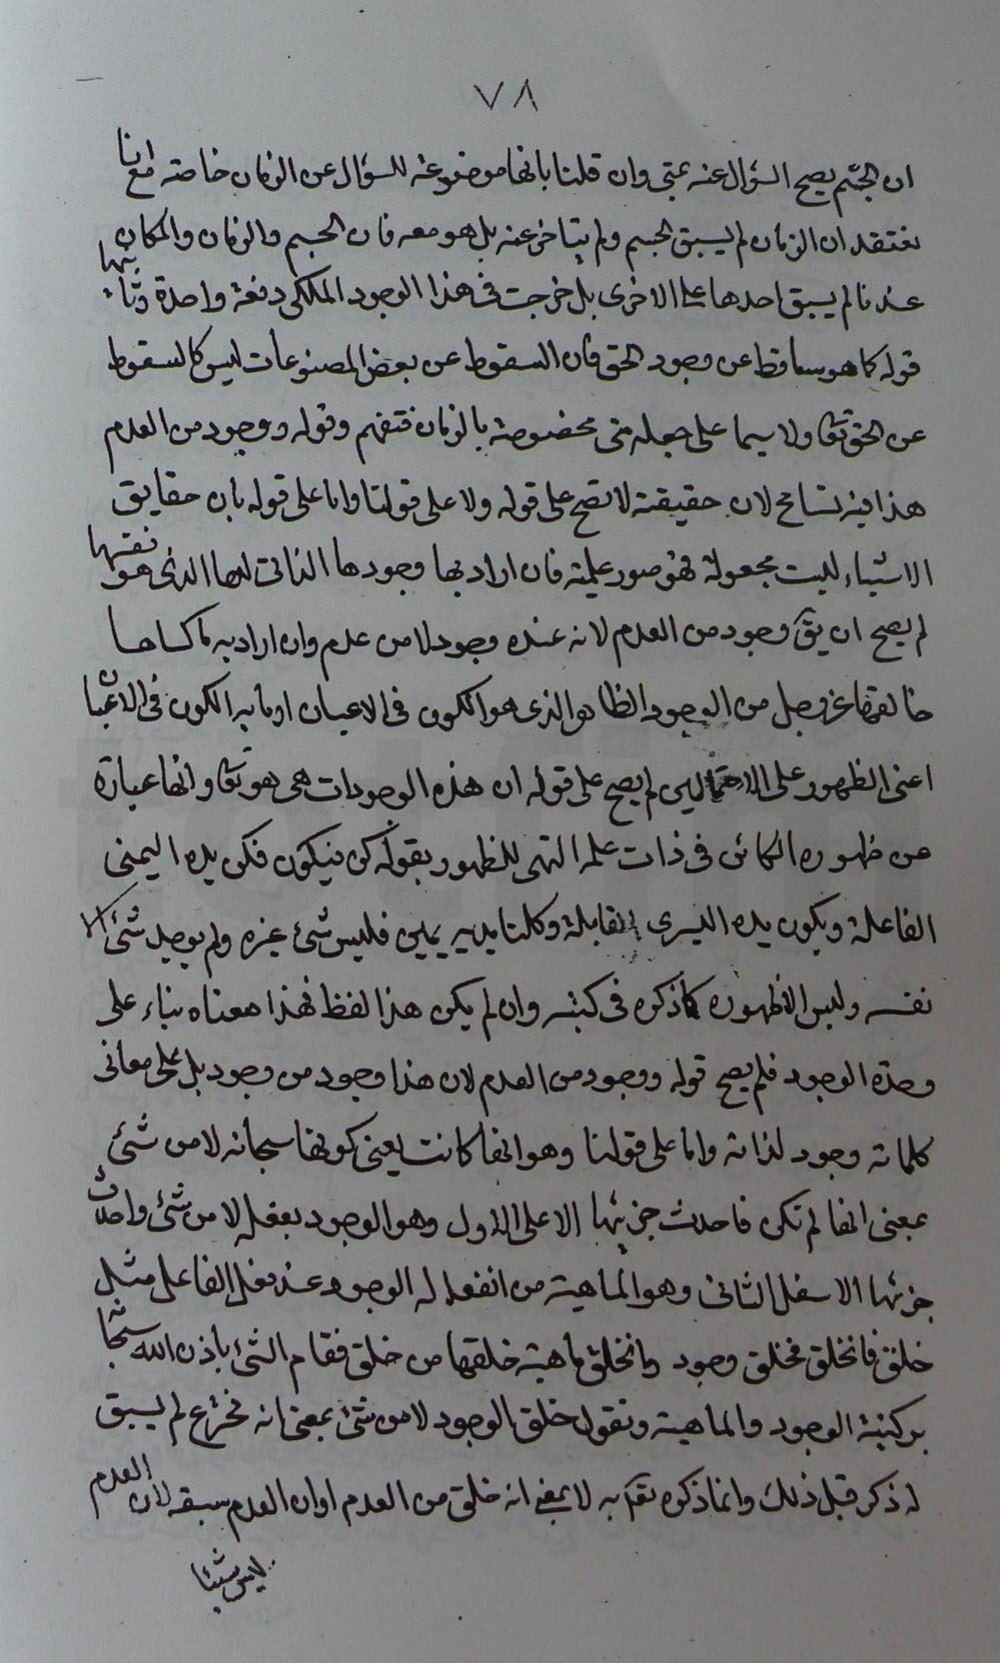 ٧٨
ان الجسم يصح السؤال عنه بمتى وان قلنا بانها موضوعة للسؤال عن الزمان خاصة مع انا
نعتقد ان الزمان لم يسبق الجسم ولم يتأخر عنه بل هو معه فان الجسم والزمان والمكان
عندنا لم يسبق احدها على الاخرى بل خرجت فى هذا الوجود الملكى دفعة واحدة وثانيها
قوله كما هو ساقط عن وجود الحق فان السقوط عن بعض المصنوعات ليس كالسقوط
عن الحق تعا ولا سيما على جعله متى مخصوصة بالزمان فتفهم وقوله ووجود من العدم
هذا فيه تسامح لان حقيقته لا تصح على قوله ولا على قولنا واما على قوله بان حقايق
الاشياء ليست مجعولة فهى صور علمية فان اراد بها وجودها الذاتى لها الذى هو نفسها
لم يصح ان يق وجود من العدم لانه عنده وجود لا من عدم وان اراد به ما كساها
خالقها عز وجل من الوجود الظاهر الذى هو الكون فى الاعيان او ما به الكون فى الاعيان
اعنى الظهور على الاحتمالين لم يصح على قوله ان هذه الوجودات هى هو تعا وانها عبارة
من ظهوره الكائن فى ذات علمه المتهى للظهور بقوله كن فيكون فكن يده اليمنى
الفاعلة ويكون يده اليسرى القابلة وكلتا يديه يمين فليس شئ غيره ولم يوجد شئ الا
نفسه وليس الا ظهوره كما ذكره فى كتبه وان لم يكن هذا لفظ فهذا معناه بناء على
وحدة الوجود فلم يصح قوله ووجود من العدم لان هذا وجود من وجود بل على معانى
كلماته وجود لذاته واما على قولنا وهو انها كانت يعنى كونها سبحانه لا من شئ
بمعنى انها لم تكن فاحدث جزئها الاعلى الاول وهو الوجود بفعله لا من شئ واحدث
جزئها الاسفل الثانى وهو الماهية من انفعاله الوجود عند فعل الفاعل مثل
خلق فانخلق فخلق وجود وانخلق ماهية خلقها من خلق فقام الشئ باذن الله سبحانه
بركنيه الوجود والماهية ونقول خلق الوجود لا من شئ بمعنى انه مخترع لم يسبق
له ذكر قبل ذلك وانما ذكره به لا بمعنى انه خلق من العدم او ان العدم سبقه لان العدم
ليس شيئا